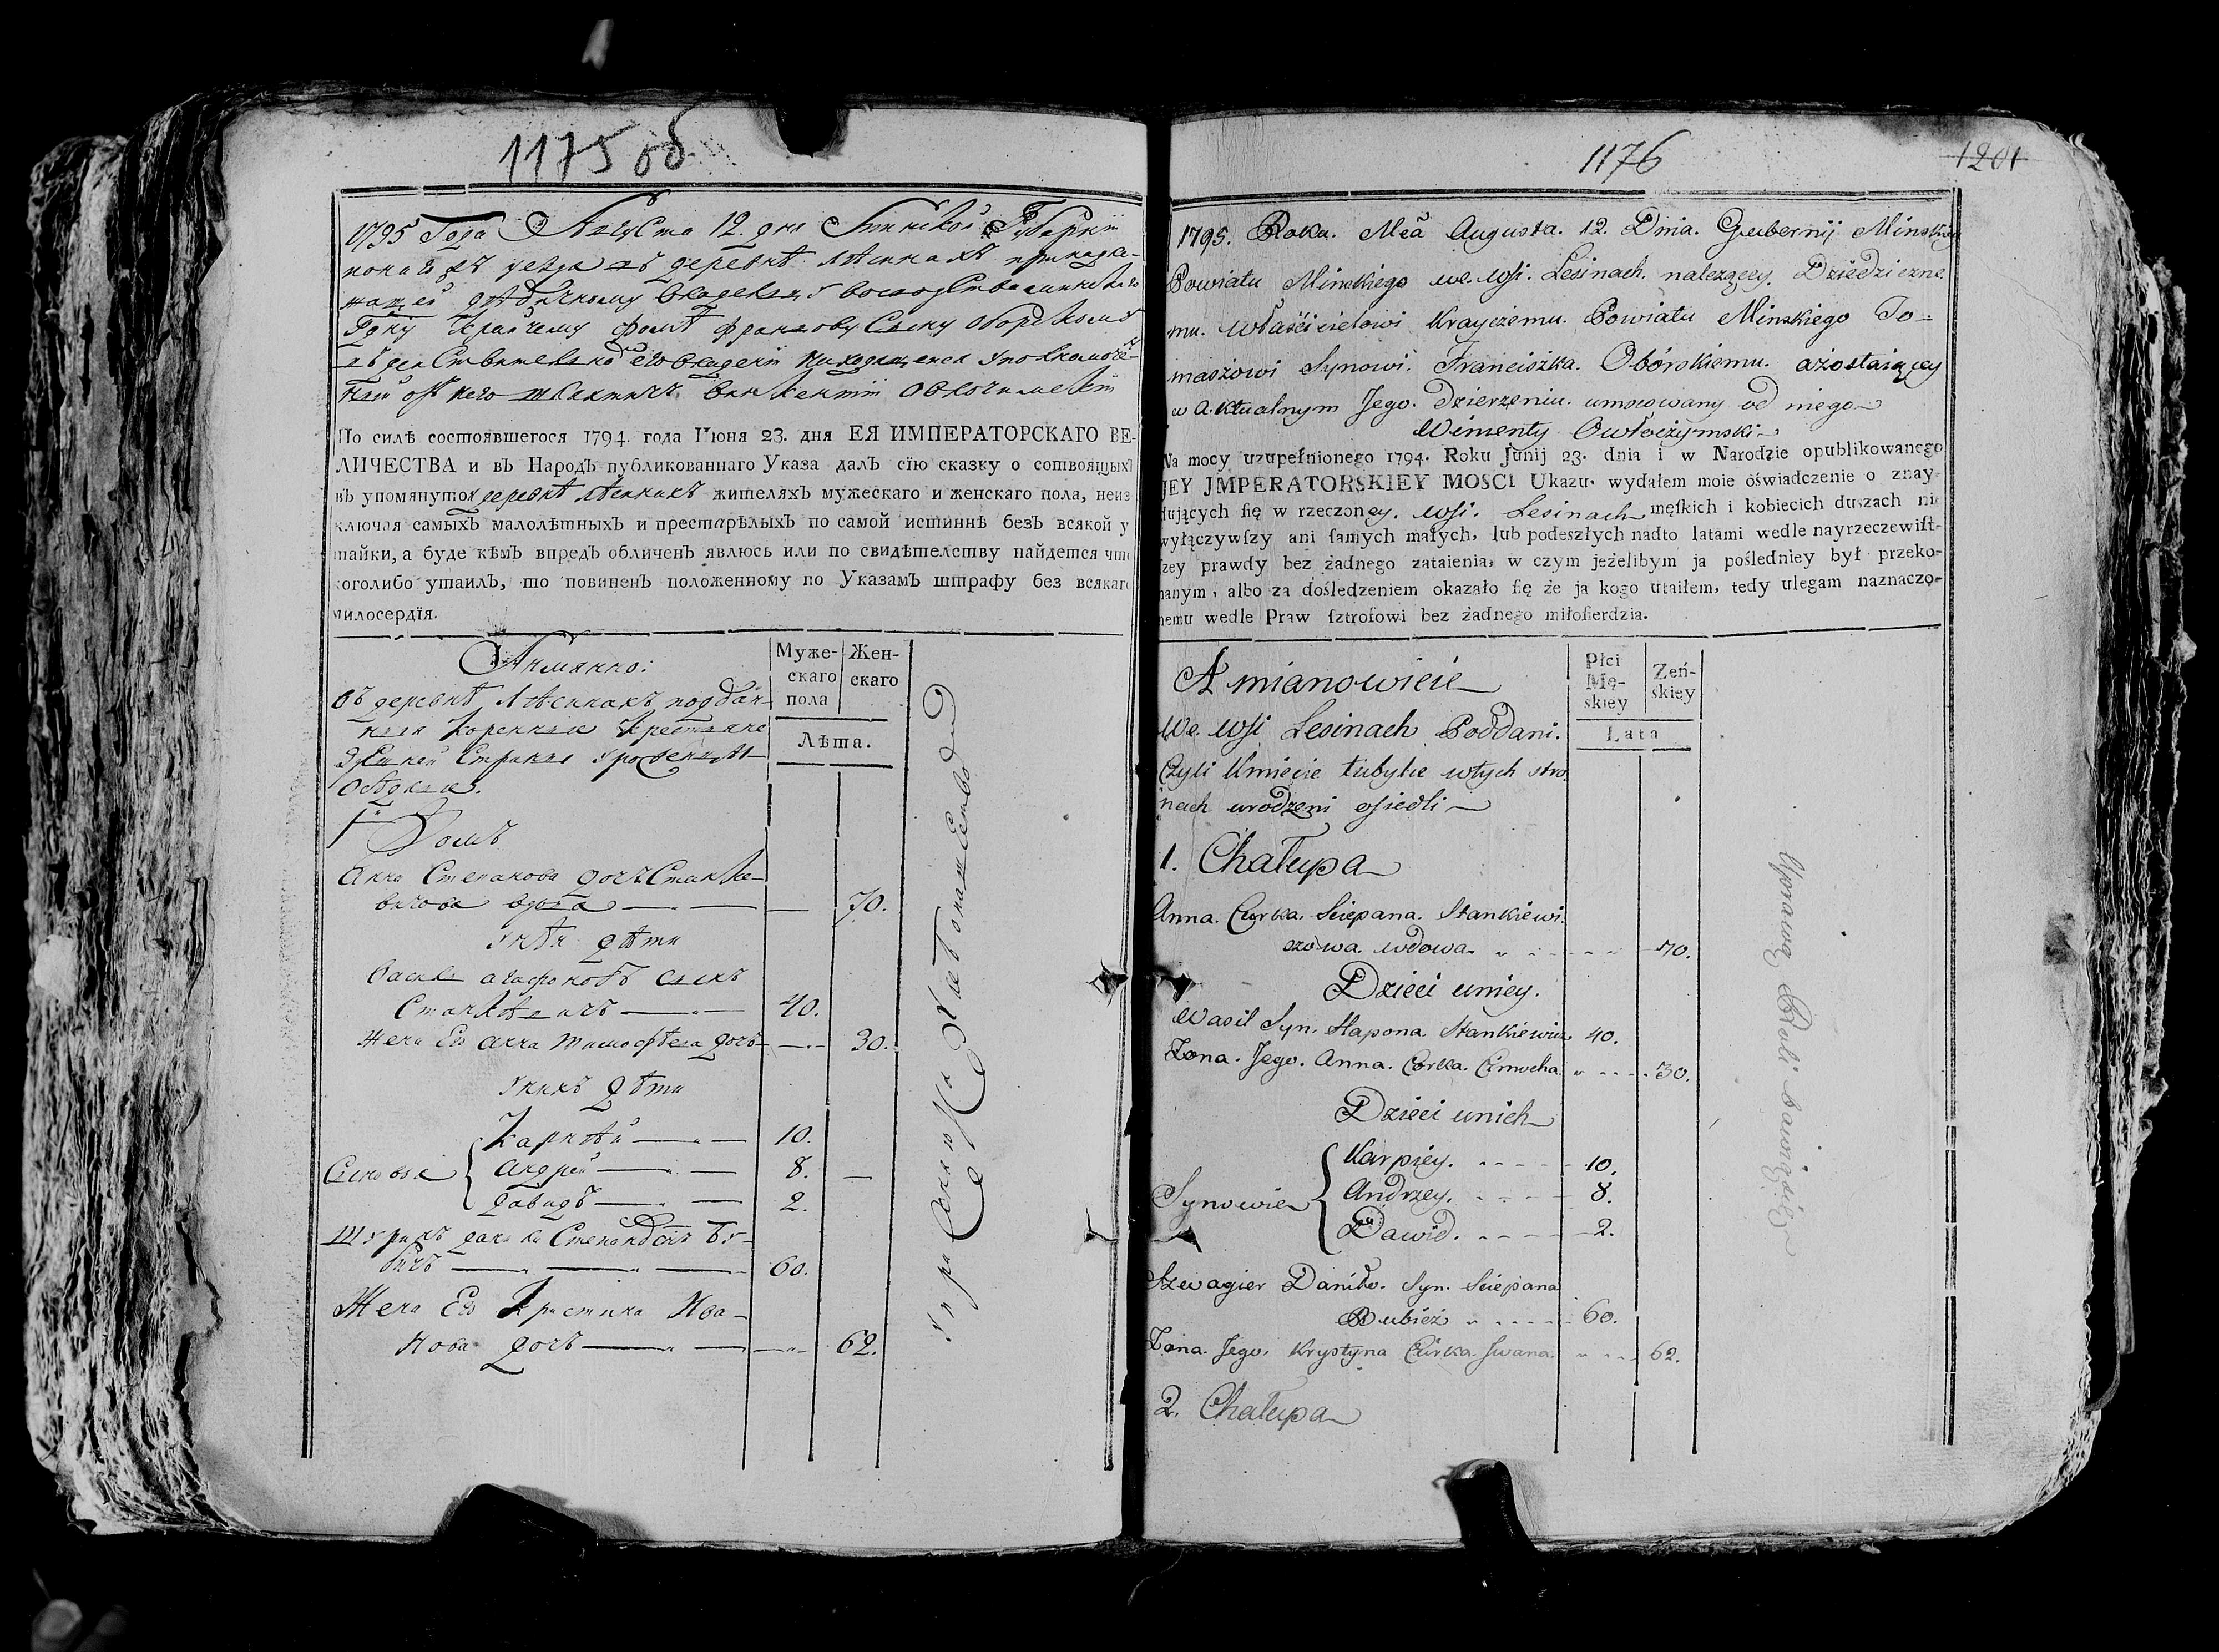 1175 об
1795 Года Августа 12. дня Минской Губерніи
того уезда въ деревнѣ Лѣсинахъ принадле-
жащей
Крайчему Фомѣ Францову Сыну Оборскому
владении
отъ него Викентій
По силѣ состоявшегося 1794. года Іюня 23. дня ЕЯ ИМПЕРАТОРСКАГО ВЕ-
ЛИЧЕСТВА и въ Народъ публикованнаго Указа далъ сїю сказку о сотвоящыхъ
въ упомянутой деревнѣ Лѣсинахъ жителяхъ мужескаго и женскаго пола, неиз
ключая самыхъ малолѣтныхъ и престарѣлыхъ по самой истиннѣ безъ всякой у
тайки, а буде кѣмъ впредъ обличенъ явлюсь или по свидѣтелству найдется что
коголибо утаилъ, то повиненъ положенному по Указамъ штрафу без всякаго
милосердїя.
Аимянно:
Муже-
скаго
пола
Жен-
скаго
Лѣта.
Въ деревнѣ Лѣсинахъ поддан-
ныя коренныя крестьяне
здѣшней Страны уроженцы
Осѣдлые.
1й Домъ
Анна Степанова дочь Станке-
вичова вдова 70.
у нѣй дѣти
Василь Агафоновъ сынъ
Станкѣвичъ 40.
Жена Его Анна Тимофѣева дочь 30.
у нихъ дѣти
Сыновья
Карпѣй 10.
Андрей 8.
Давидъ 2.
Шуринъ Данила Степановъ Бу-
бичъ 60.
Жена Его Христина Ива-
нова дочь 62.
1176
1201
1795. Roku. Mca Augusta. 12. Dnia. Gubernij Minskiey
Powiatu Minskiego we. wsi. Lesinach. należącey. Dziedziczne
mu. właścicielowi Krayczemu. Powiatu Minskiego To-
maszowi Synowi. Franciszka. Obórskiemu. azostaiącey
w Aktualnym Jego. Dzierzeniu. umocowany od niego
Wincenty Owłoczymski
Na mocy uzupełnionego 1794. Roku Junij 23. dnia i w Narodzie opublikowanego
JEY JMPERATORSKIEY MOSCI Ukazu. wydałem moie oświadczenie o znay-
dujących ſię w rzeczoney. wsi. Lesinach męſkich i kobiecich duszach nie
wyłączywſzy ani ſamych małych, lub podeszłych nadto latami wedle nayrzeczewiſt-
ſzey prawdy bez żadnego zataienia, w czym jeżelibym ja poślednіey był przeko-
nanym, albo za dośledzeniem okazało ſię że ja kogo utaiłem, tedy ulegam naznaczo-
nemu wedle Praw ſztrofowi bez żadnego miłoſierdzia.
A mianowicie
Płci
Mę-
skiey
Zeń-
skiey
Lata
We. wsi Lesinach Poddani.
Czyli Kmiecie tubylce wtych stro
nach urodzeni osiedli
1. Chałupa
Anna. Curka. Sciepana. Stankiewi.
czowa. wdowa 70.
Dzieci uniey.
Wasil Syn. Hapona. Stankiewicz 40.
Zona. Jego. Anna. Corka. Cimocha. 30.
Dzieci unich
Synowie
Karpiey. 10.
Andrzey. 8.
Dawid. 2.
Szwagier Daniło. Syn. Sciepana
Bubicz 60.
Zona. Jego. Krystyna Curka. Jwana. 62.
2. Chałupa
Uprawą Roli bawiącysię